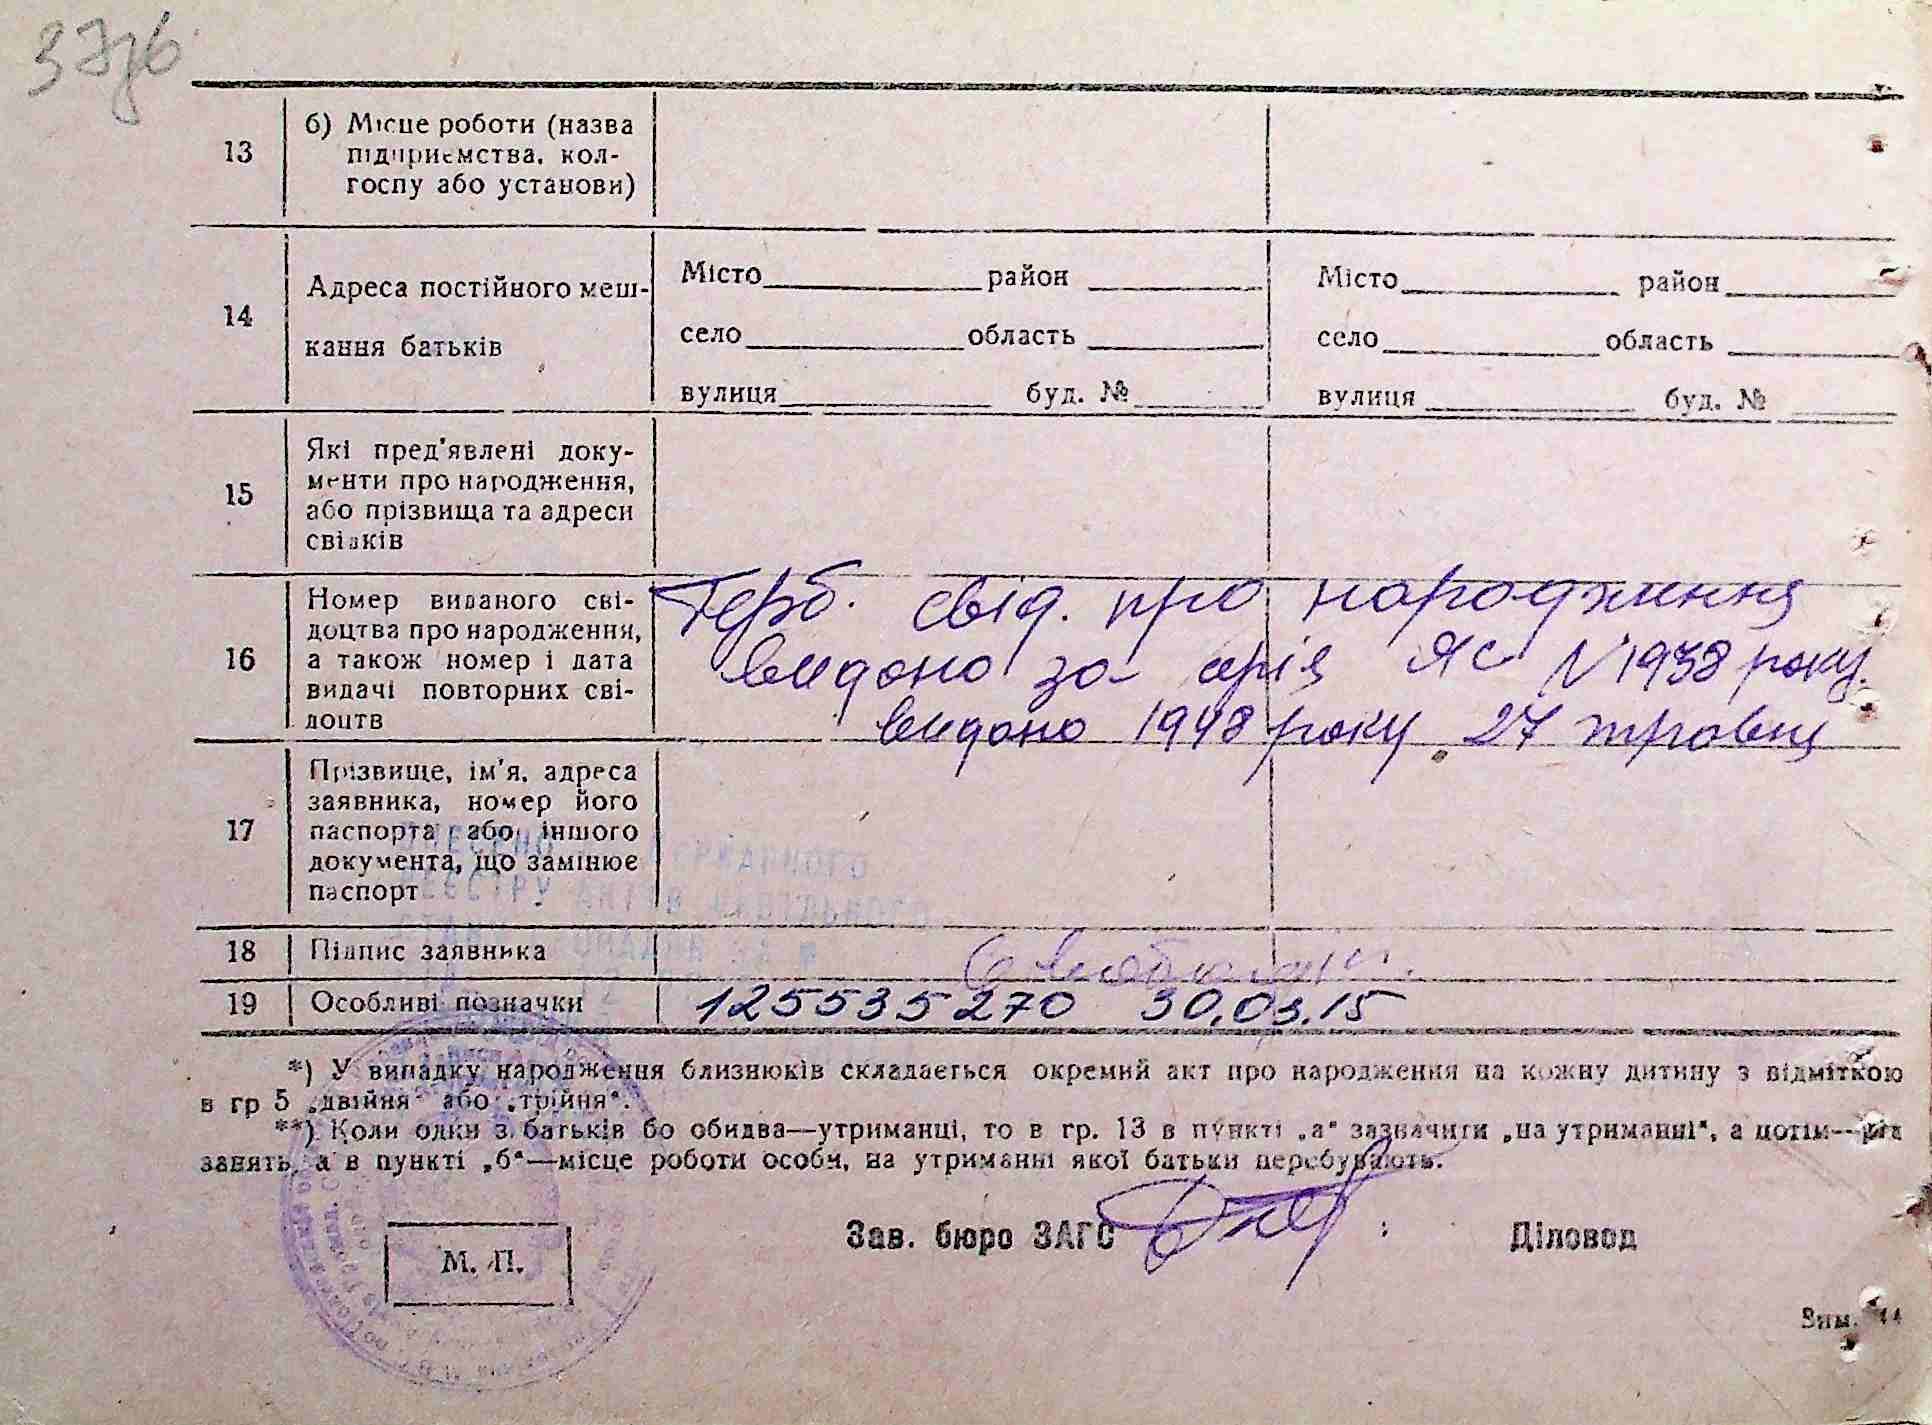 37зв
13
б) Місце роботи (назва
підприємства, кол-
госпу або установи)
14
Адреса постійного меш-
кання батьків
Місто район
село область
вулиця буд. №
Місто район
село область
вулиця буд. №
15
Які пред'явлені доку-
менти про народження,
або прізвища та адреси
свідків
16
Номер виданого сві-
доцтва про народження,
а також номер і дата
видачі повторних сві-
доцтв
Герб. свід. про народження
видано за серія ЯС N 1938 року.
видано 1948 року 27 травня
17
Прізвище, ім'я, адреса
заявника, номер його
паспорта або іншого
документа, що замінює
паспорт
ВНЕСЕНО ДЕРЖАВНОГО
РЕЄСТРУ АКТІВ ЦИВІЛЬНОГО
СТАНУ ГРОМАДЯН ЗА №
18
Підпис заявника
19
Особливі позначки
125535270 30.03.15
*) У випадку народження близнюків складається окремий акт про народження на кожну дитину з відміткою
в гр 5 „двійня“ або „трійня“.
**) Коли один з батьків бо обидва—утриманці, то в гр. 13 в пункті „а“ зазначити „на утриманні“, а потім—рід
занять, а в пункті „б“—місце роботи особи, на утриманні якої батьки перебувають.
М. П.
Зав. бюро ЗАГС :
Діловод
Зам. 44